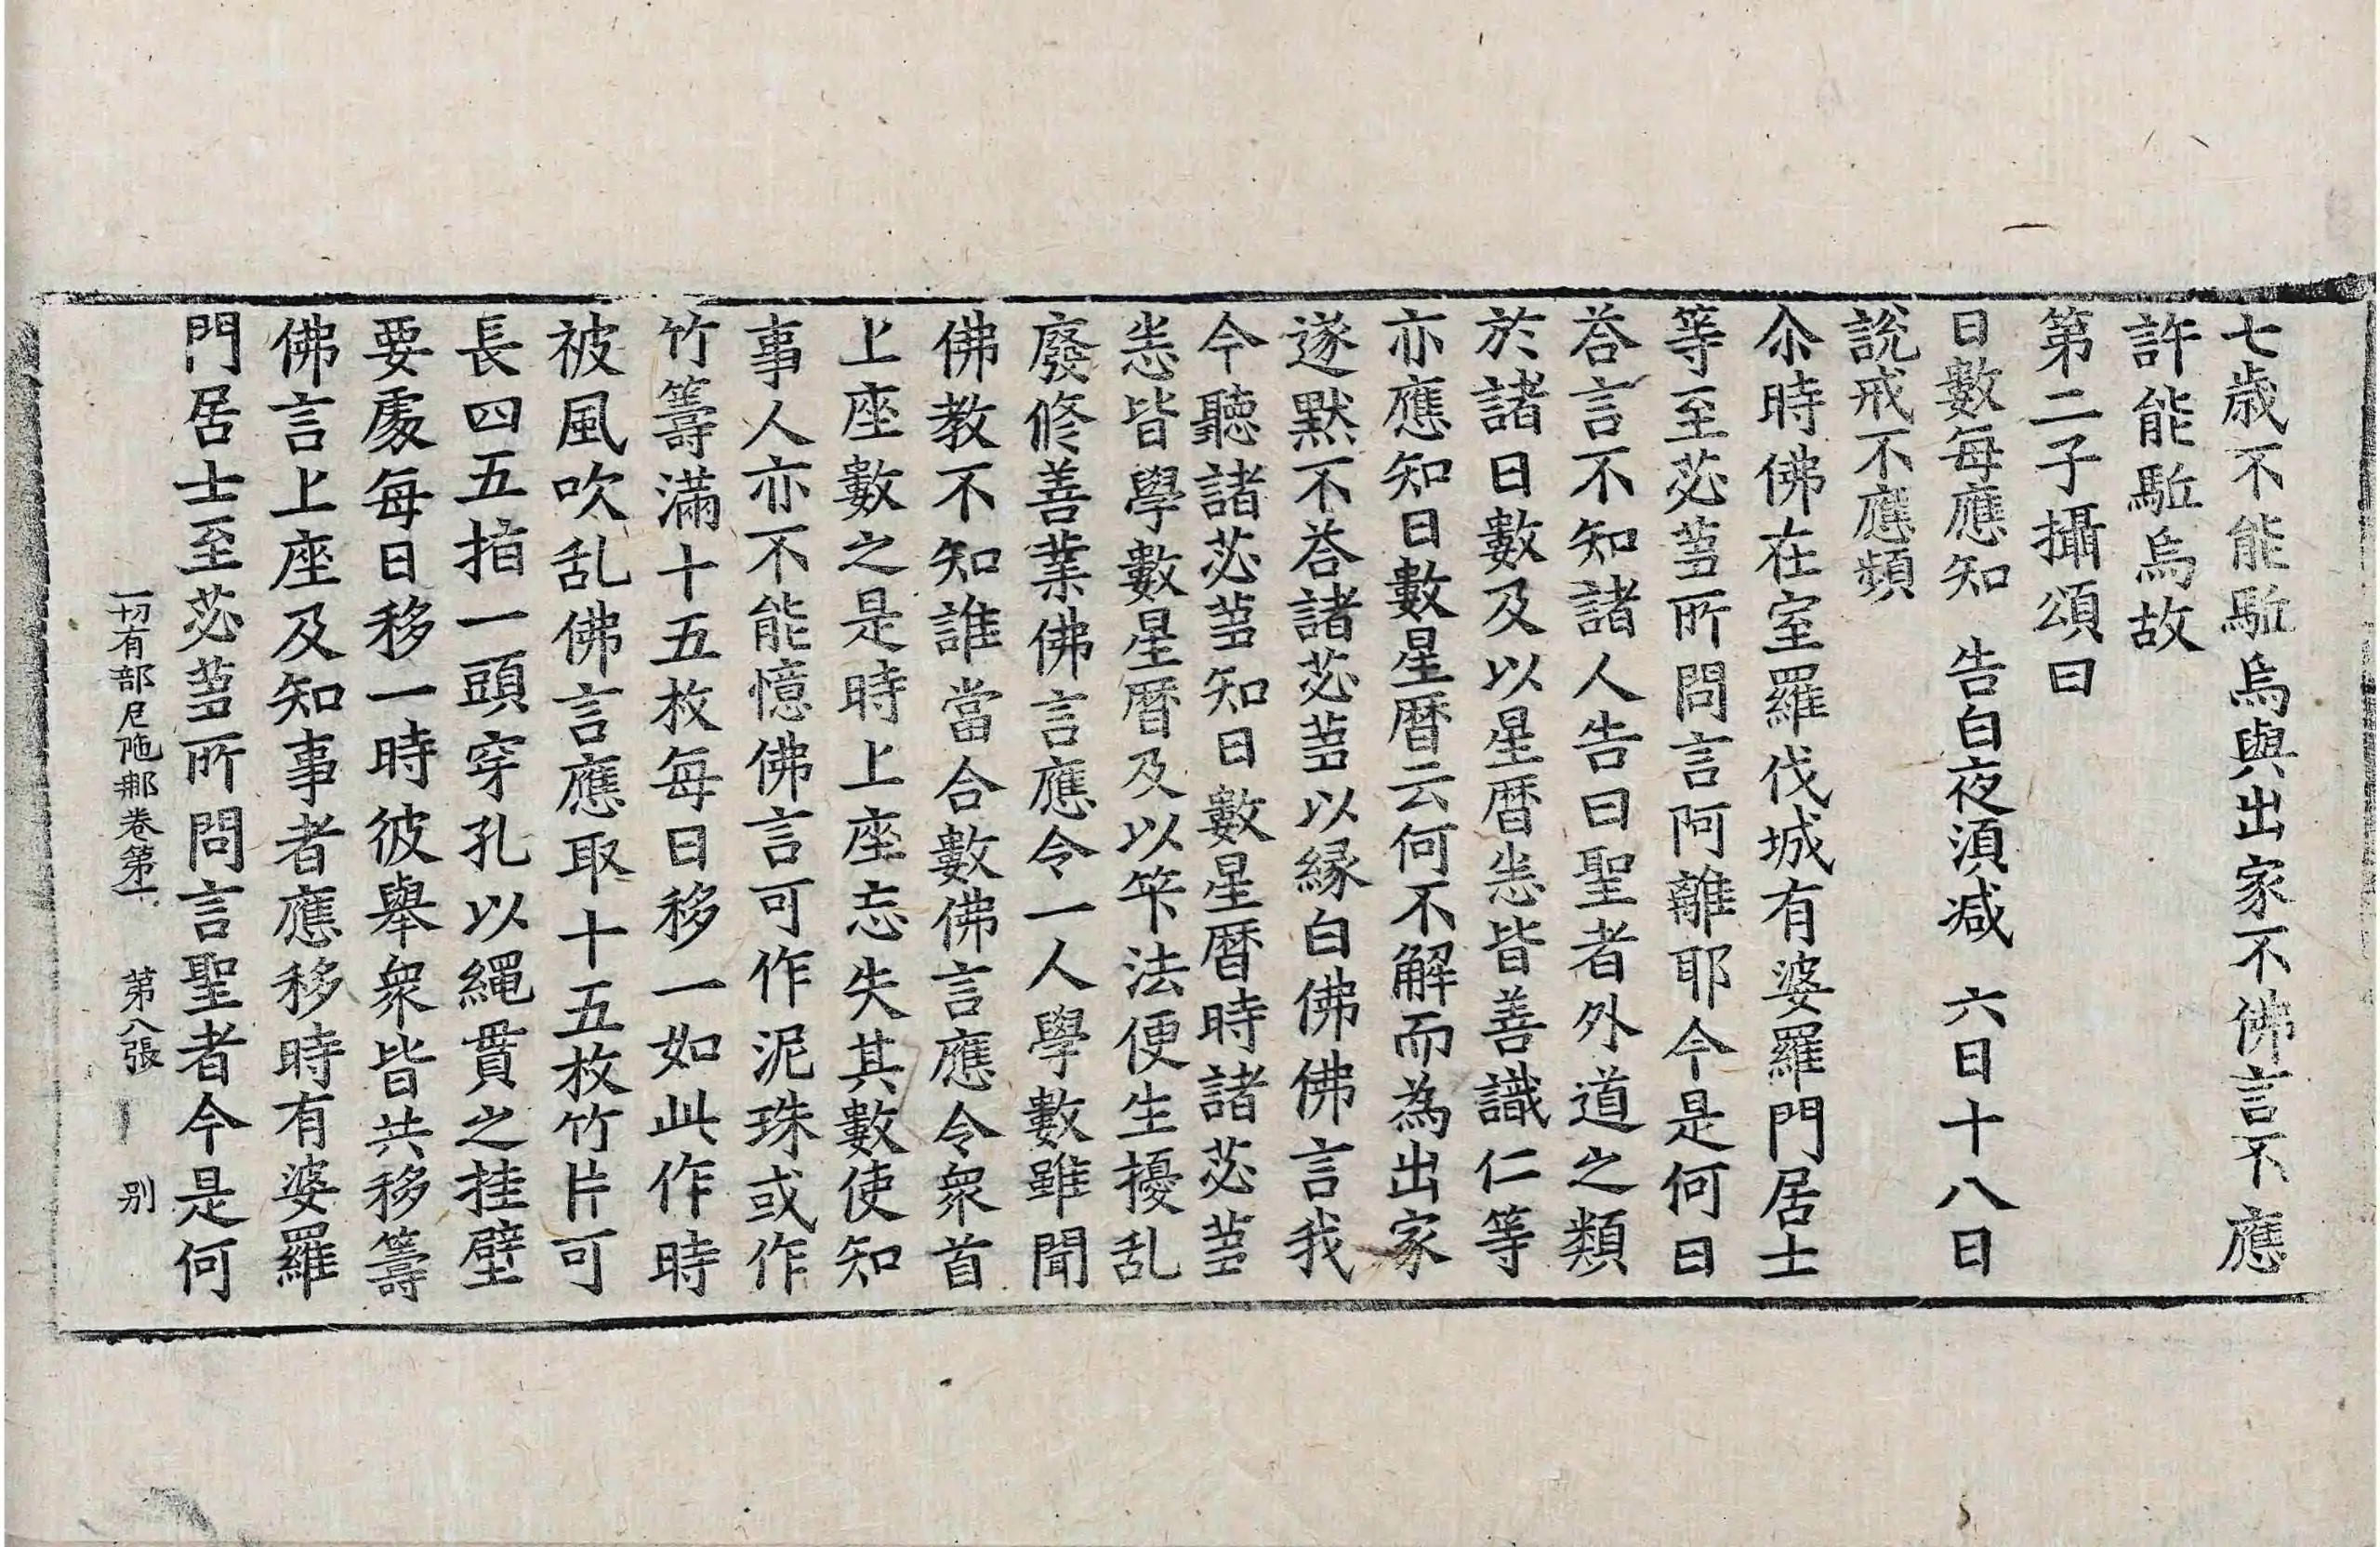 七歳不能駈烏與出家不佛言不應
許能駈烏故
第二子攝頌曰
日數每應知　告白夜須减　六日十八日
說戒不應頻
尒時佛在室羅伐城有婆羅門居士
等至苾蒭所問言阿離耶今是何日
荅言不知諸人告曰聖者外道之類
於諸日數及以星曆悉皆善識仁等
亦應知日數星曆云何不解而為出家
遂默不荅諸苾蒭以縁白佛佛言我
今聽諸苾蒭知日數星曆時諸苾蒭
悉皆學數星曆及以筭法便生擾乱
廢修善業佛言應令一人學數雖聞
佛教不知誰當合數佛言應令衆首
上座數之是時上座忘失其數使知
事人亦不能憶佛言可作泥珠或作
竹籌滿十五枚每日移一如此作時
被風吹乱佛言應取十五枚竹片可
長四五指一頭穿孔以繩貫之挂壁
要處每日移一時彼舉衆皆共移籌
佛言上座及知事者應移時有婆羅
門居士至苾蒭所問言聖者今是何
一切有部尼陁那卷第一　第八張　別